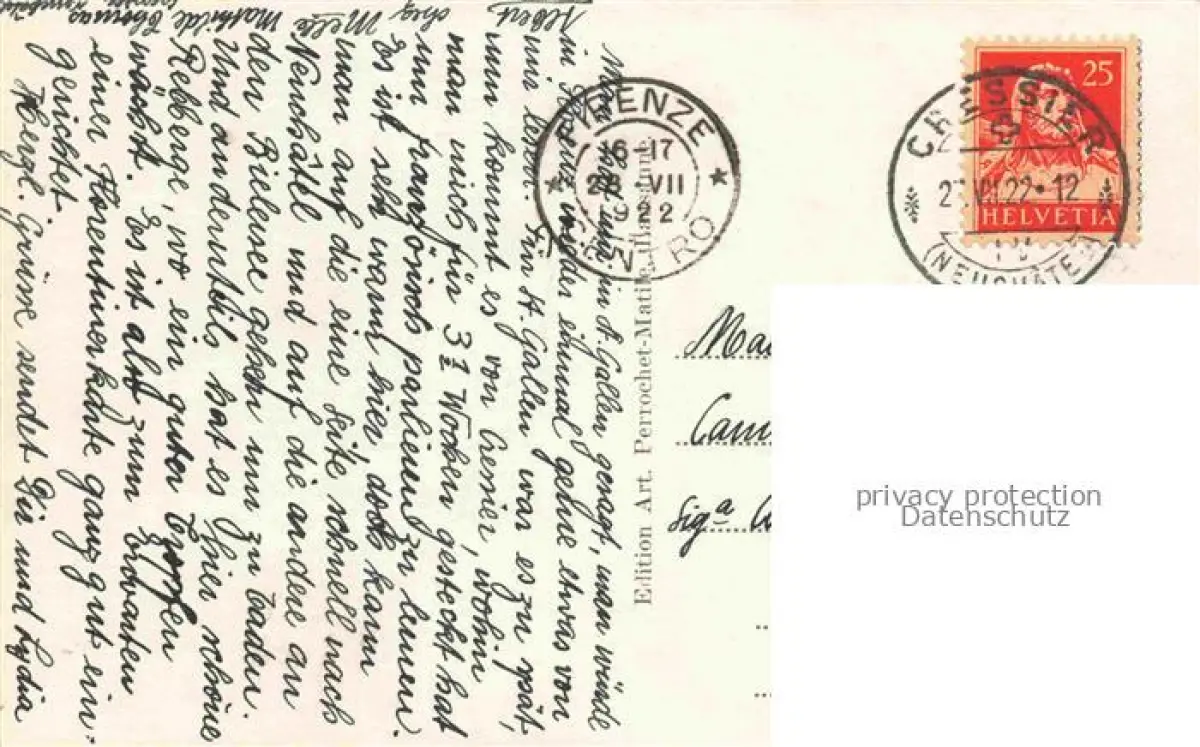 Man hat mir in St. Gallen gesagt, man würde
in Florenz wieder einmal gerne etwas von
mir lesen. In St. Gallen war es zu spät,
nun kommt es von Cressier, wohin
man mich für 3½ Wochen gesteckt hat
um französisch parlieren zu lernen.
Es ist sehr warm hier, doch kann
man auf die eine Seite schnell nach
Neuchâtel und auf die andere an
den Bielersee gehen um zu baden.
Und anderntheils hat es hier schöne
Rebberge, wo ein guter Tropfen
wächst. Es ist also zum Erwarten
einer Florentinerkarte ganz gut ein-
gerichtet
Herzl. Grüsse sendet Dir und Lydia
Albert
chez Melle
Mathilde Thomas
Edition Art. Perrochet-Matile, Lausanne
FIRENZE
16-17
28 VII
1922
CENTRO
CRESSIER
VII.22-12
(NEUCHÂTEL)
25
HELVETIA
Sigª
privacy protection
Datenschutz